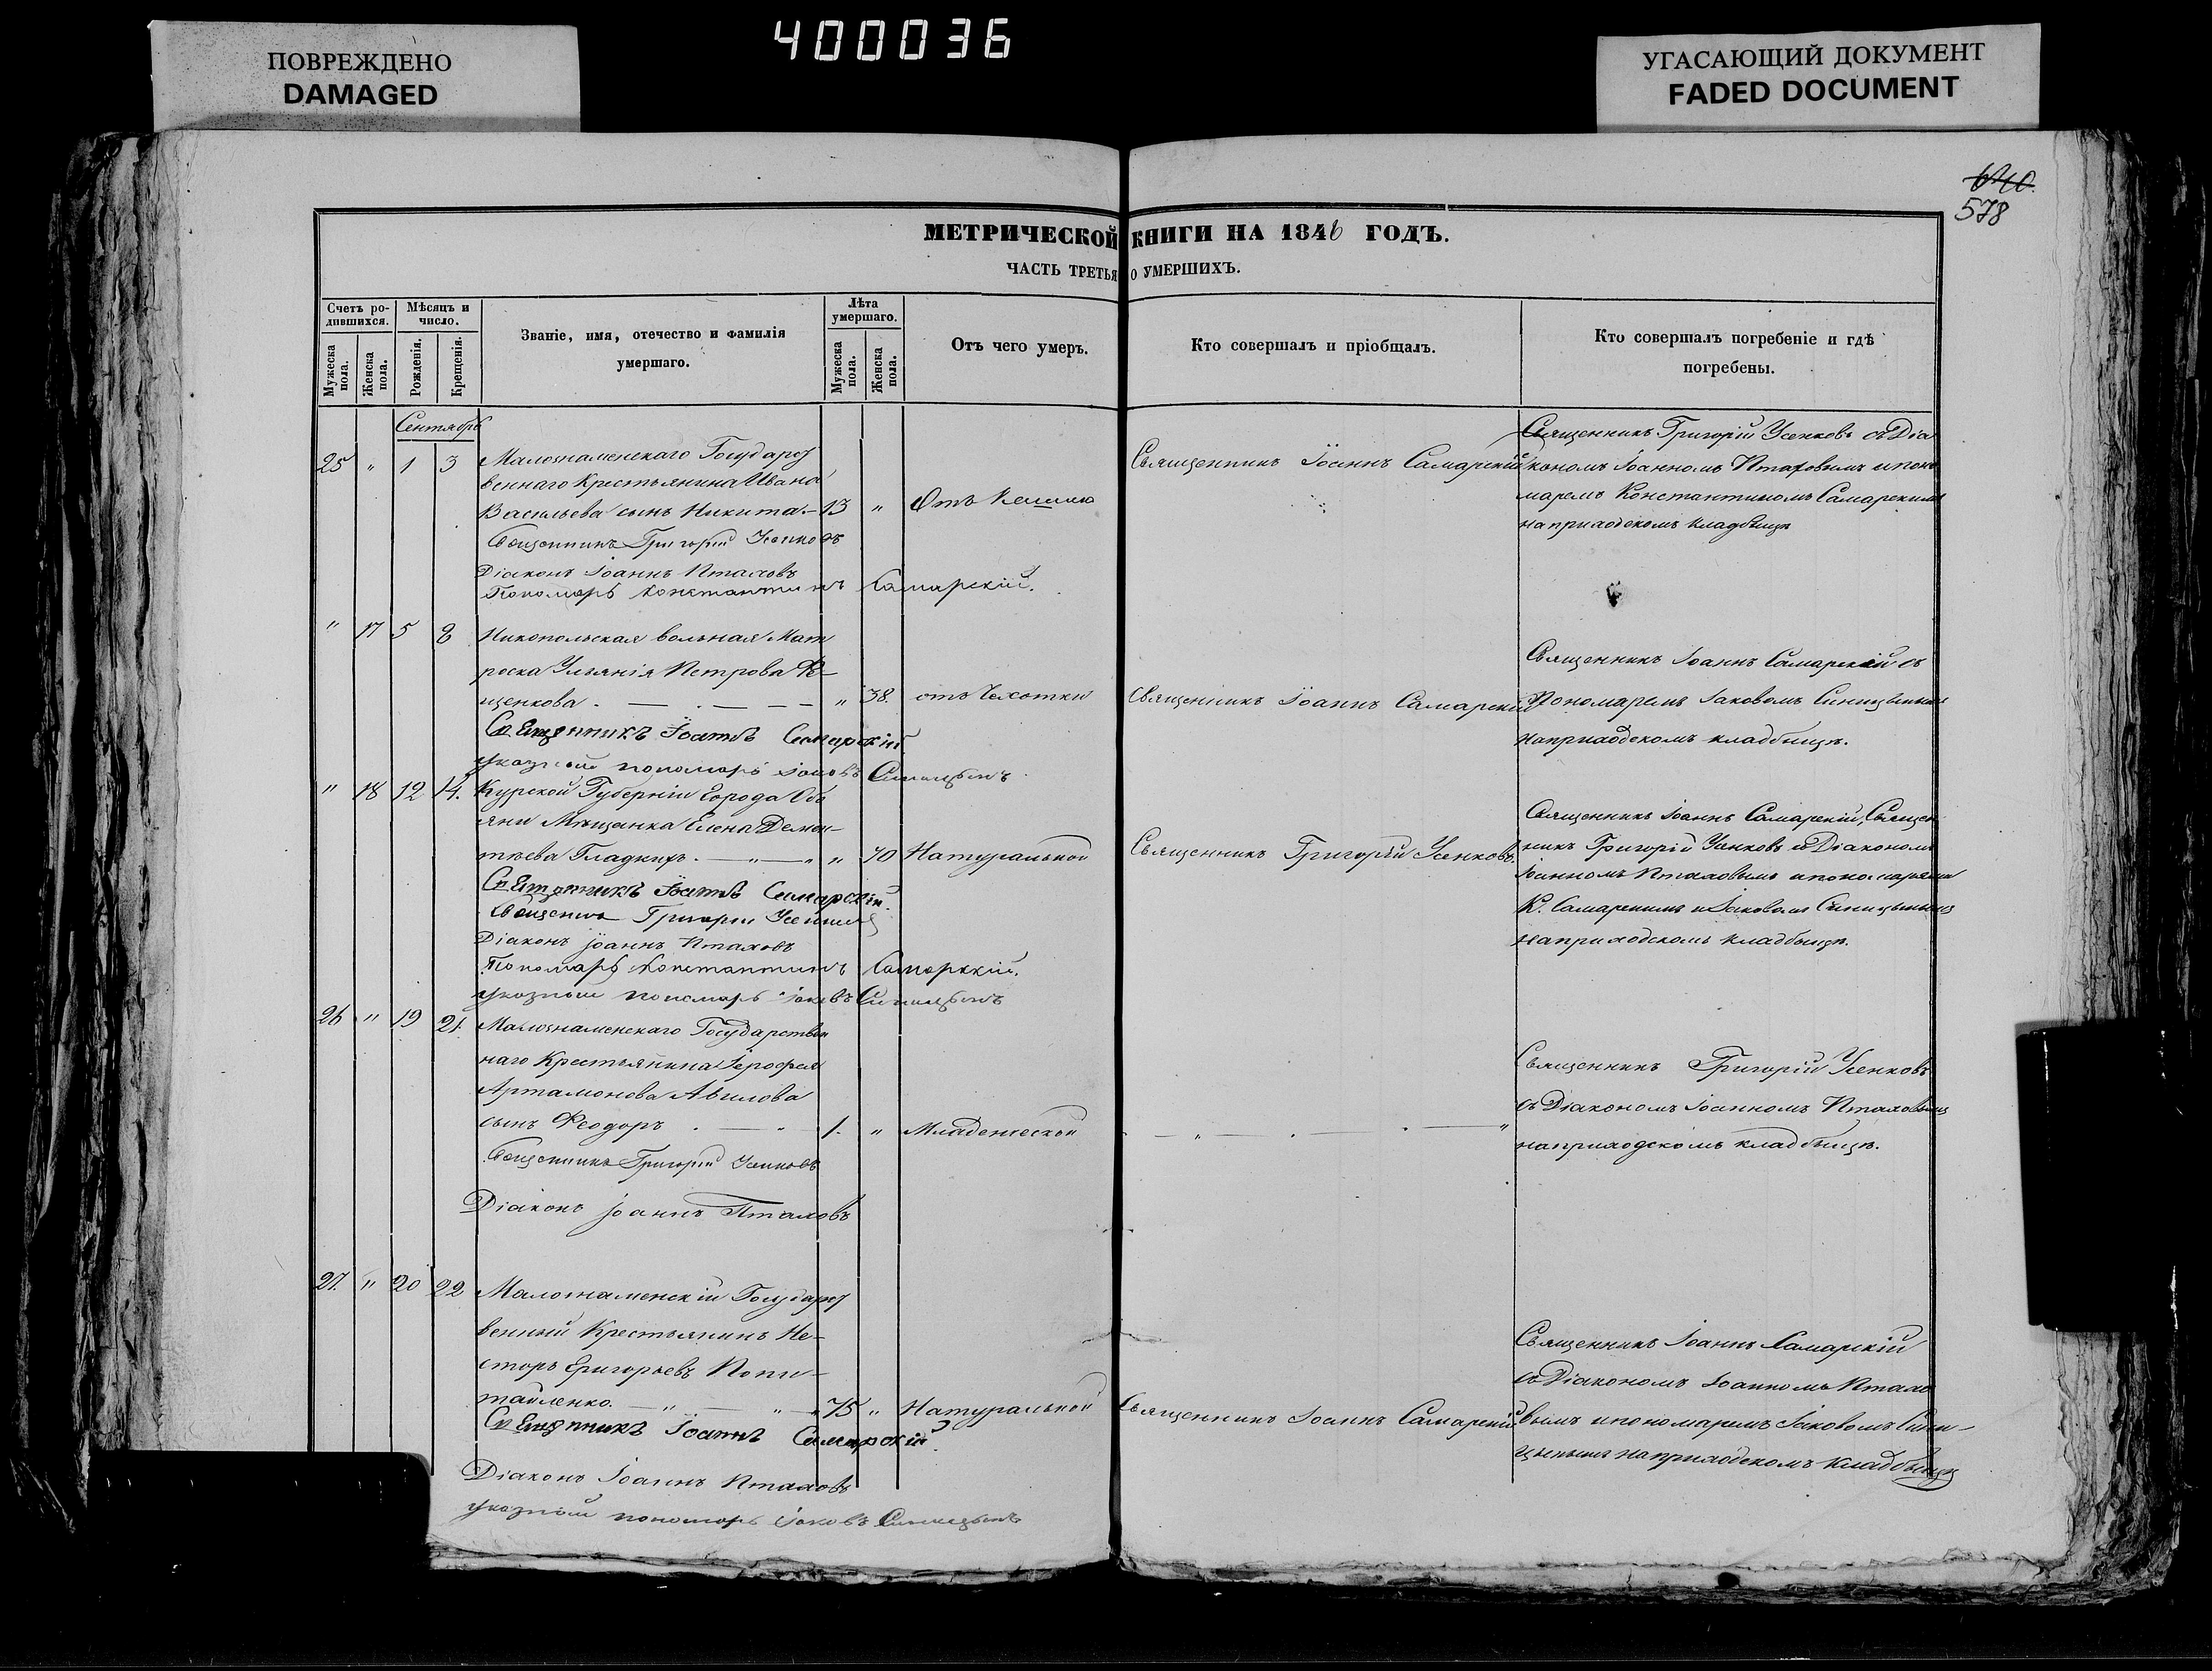 ПОВРЕЖДЕНО
DAMAGED
400036
УГАСАЮЩИЙ ДОКУМЕНТ
FADED DOCUMENT
640.
578
МЕТРИЧЕСКОЙ КНИГИ НА 1846 ГОДЪ.
ЧАСТЬ ТРЕТЬЯ О УМЕРШИХЪ.
Счетъ ро-
дившихся.
Мужеска пола.
Женска пола.
Мѣсяцъ и
число.
Рожденія.
Крещенія.
Званіе, имя, отечество и фамилія
умершаго.
Лѣта
умершаго.
Мужеска пола.
Женска пола.
Отъ чего умеръ.
Кто совершалъ и пріобщалъ.
Кто совершалъ погребеніе и гдѣ
погребены.
Сентябрь
25 " 1 3 Малознаменскаго Государст
веннаго Крестьянина Ивана
Васильева сынъ Никита. – 13 " Отъ Кашлю
Священникъ Іоаннъ Самарскій
Священникъ Григорій Усенковъ съ Діа
кономъ Іоанномъ Птаховымъ и поно
маремъ Константиномъ Самарскимъ
на приходскомъ кладбищѣ
Священникъ Григорій Усенковъ
Діаконъ Іоаннъ Птаховъ
Пономарь Константинъ Самарскій.
" 17 5 8 Никопольская вольная Мат
роска Ульянія Петрова
щенкова . — . — — — " 38. отъ Чахотки
Священникъ Іоаннъ Самарскій
Священникъ Іоаннъ Самарскій съ
Пономаремъ Іаковомъ Синицынымъ
на приходскомъ кладбищѣ.
Священникъ Іоаннъ Самарскій
указный пономарь Іаковъ Синицынъ
" 18 12 14. Курской Губерніи Города Обо
яни Мѣщанка Елена Демен-
тѣева Гладкихъ. — " — " " 70 Натуральной
Священникъ Григорій Усенковъ.
Священникъ Іоаннъ Самарскій, Священ
никъ Григорій Усенковъ и Діакономъ
Іоанномъ Птаховымъ и пономарями
К. Самарскимъ и Іаковомъ Синицынымъ
на приходскомъ кладбищѣ.
Священникъ Іоаннъ Самарскій.
Священникъ Григорій Усенковъ
Діаконъ Іоаннъ Птаховъ
Пономарь Константинъ Самарскій.
указный пономарь Іаковъ Синицынъ
26 " 19 21. Малознаменскаго Государствен
наго Крестьянина Іерофея
Артамонова Авилова
сынъ Феодоръ . — " – 1. " Младенческой
— " — . — . — "
Священникъ Григорій Усенковъ
съ Діакономъ Іоанномъ Птаховымъ
на приходскомъ кладбищѣ.
Священникъ Григорій Усенковъ
Діаконъ Іоаннъ Птаховъ
27. " 20 22 Малознаменскій Государст
венный Крестьянинъ Не-
сторъ Григорьевъ Попи-
тайленко. — " — " — 75 " Натуральной
Священникъ Іоаннъ Самарскій
Священникъ Іоаннъ Самарскій
съ Діакономъ Іоанномъ Птахо
вымъ и пономаремъ Іаковомъ Сини-
цынымъ на приходскомъ кладбищѣ
Священникъ Іоаннъ Самарскій.
Діаконъ Іоаннъ Птаховъ
указный пономарь Іаковъ Синицынъ